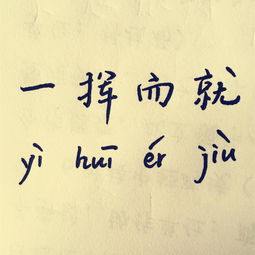 一挥而就
yì huī ér jiù